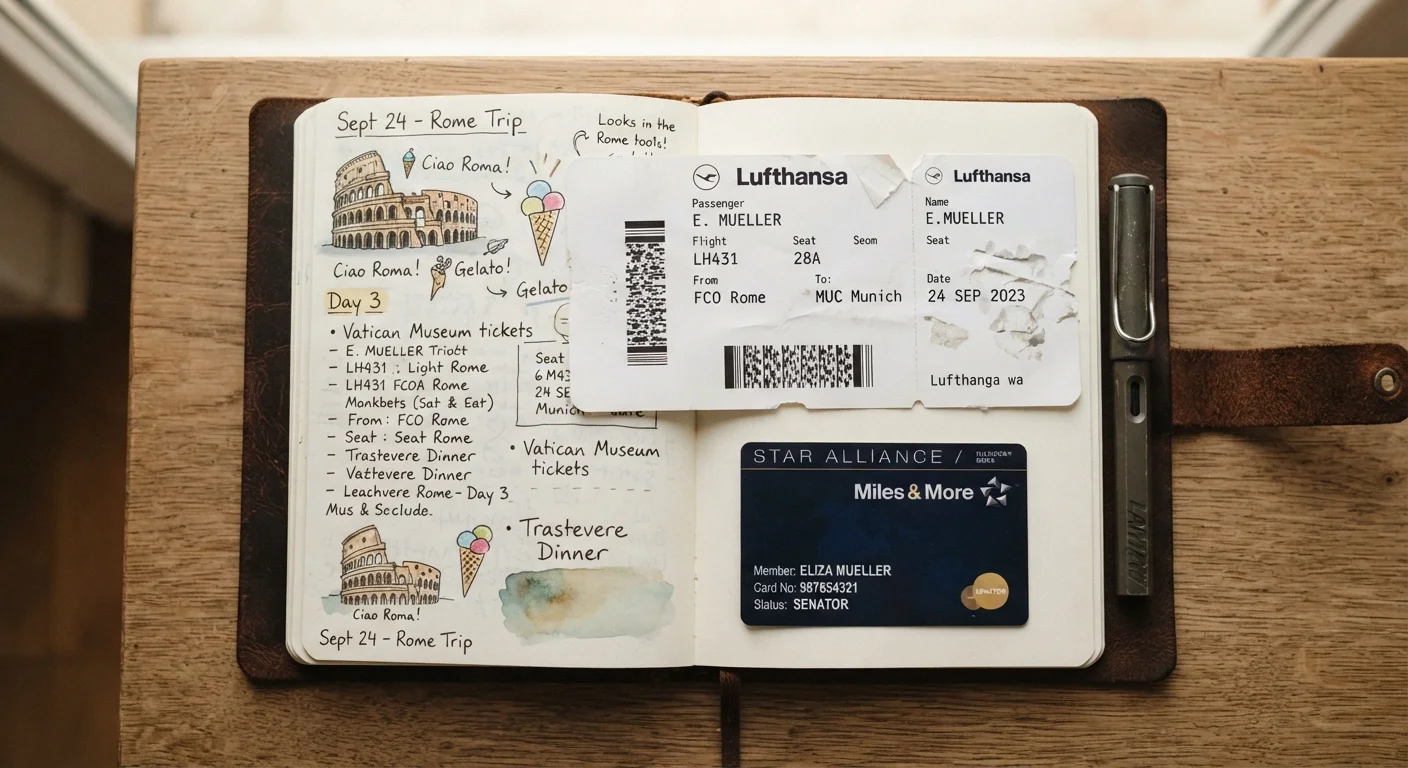 Sept 24 - Rome Trip
Looks in the
Rome tools!
Ciao Roma!
Ciao Roma!
Gelato!
Gelato
Day 3
• Vatican Museum tickets
- E. MUELLER
- LH431 : Light Rome
- LH431 FCOA Rome
Monkbets (Sat & Eat)
- From : FCO Rome
- Seat : Seat Rome
- Trastevere Dinner
- Vattevere Dinner
- Leachvere Rome - Day 3
Mus & Sclude.
Seat
6 M43
24 SE
Munich
• Vatican Museum
tickets
• Trastevere
Dinner
Ciao Roma!
Sept 24 - Rome Trip
Lufthansa
Passenger
E. MUELLER
Flight Seat Seom
LH431 28A
From To:
FCO Rome MUC Munich
Lufthansa
Name
E.MUELLER
Seat
Date
24 SEP 2023
Lufthanga wa
STAR ALLIANCE /
Miles & More
Member: ELIZA MUELLER
Card No: 987654321
Status: SENATOR
LAMY